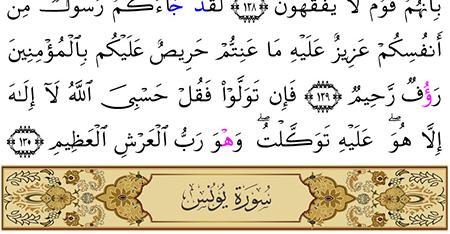 بِأَنَّهُمْ قَوْمٌ لَا يَفْقَهُونَ ﴿١٢٨﴾ لَقَدْ جَاءَكُمْ رَسُولٌ مِنْ
أَنفُسِكُمْ عَزِيزٌ عَلَيْهِ مَا عَنِتُّمْ حَرِيصٌ عَلَيْكُم بِالْمُؤْمِنِينَ
رَؤُفٌ رَحِيمٌ ﴿١٢٩﴾ فَإِن تَوَلَّوْا۟ فَقُلْ حَسْبِىَ ٱللَّهُ لَآ إِلَـٰهَ
إِلَّا هُوَ ۖ عَلَيْهِ تَوَكَّلْتُ ۖ وَهْوَ رَبُّ ٱلْعَرْشِ ٱلْعَظِيمِ ﴿١٣٠﴾
سُورَةُ يُونُسَ